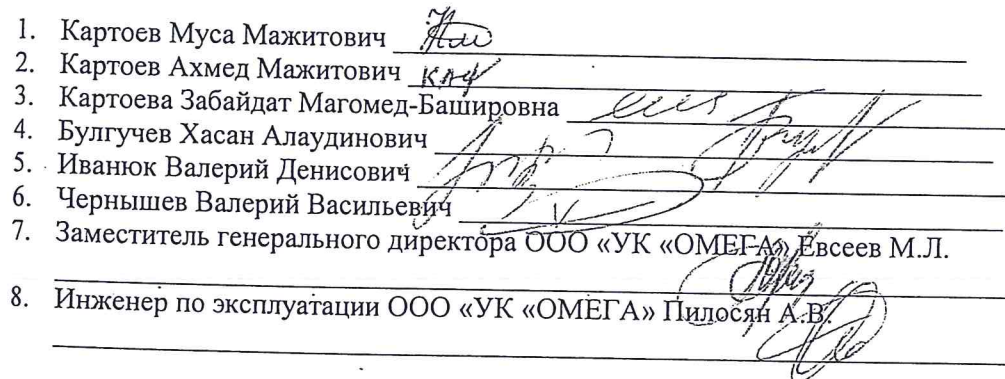 1. Картоев Муса Мажитович
2. Картоев Ахмед Мажитович
3. Картоева Забайдат Магомед-Башировна
4. Булгучев Хасан Алаудинович
5. Иванюк Валерий Денисович
6. Чернышев Валерий Васильевич
7. Заместитель генерального директора ООО «УК «ОМЕГА» Евсеев М.Л.
8. Инженер по эксплуатации ООО «УК «ОМЕГА» Пилосян А.В.